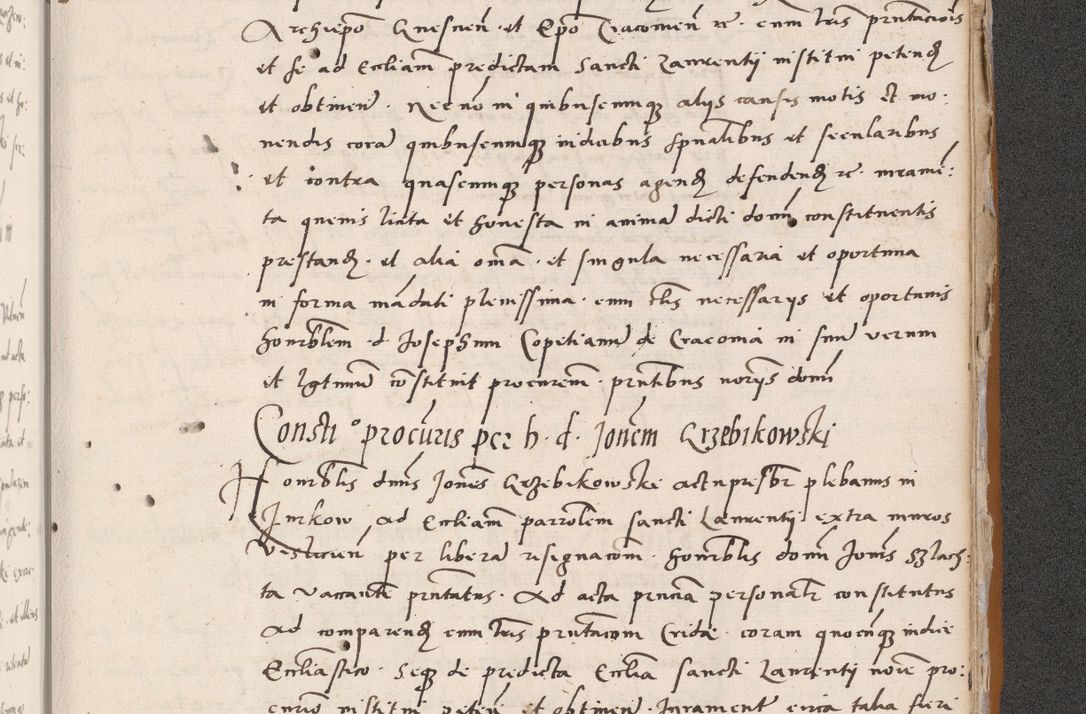 Archiepo Gnesnen et Epo Cracomen rc cum lris prntacionis
et se ad Eccliam predictam Sancti Laurentii institui petend
et obtinen. Necno in quibuscumq alijs causis motis et mo:
nendis cora quibuscumq iudicibus spualibus et secularibus
et contra quascumq personas agend defendend rc. iurame:
ta quevis licita et honesta in anima dicti domi constituentis
prestand. et alia oma et singula necessaria et oportuna
in forma madati plenissima. cum clis necessarijs et oportunis
honrblem d Josephum Copetianu de Cracovia in suu verum
et lgtimu costituit procurem. prntibus noris domi
Consti° procuris per h. d. Jonem Grzebikowski
Honrblis dnus Jones Grzebikowski actu presbr plebanus in
Jurkow, ad Eccliam parrolem sancti Laurentij extra muros
per libera resignacom honrblis domi Jonis Szlach:
ta vacante prntatus. Ad acta prntia personalr constitutus
ad comparend cum lris prntacom Cride coram quocuq iudice
Eccliastico. Seq de predicta Ecclia sancti Laurenti nove pro:
curio institui peteni et obtinen. Jurament circa talia fieri